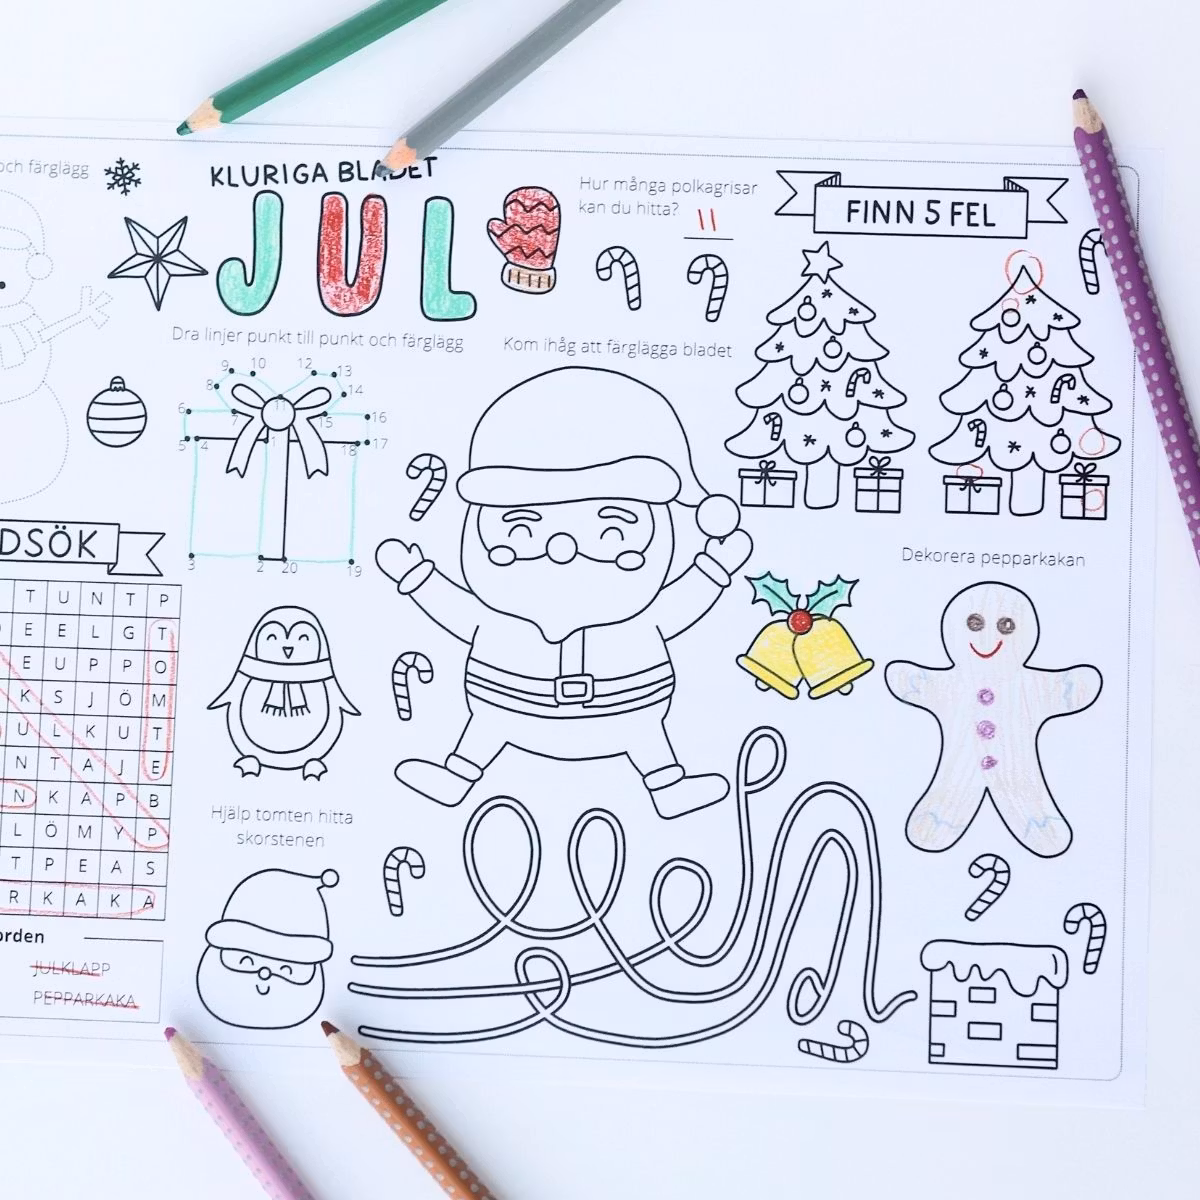 och färglägg
KLURIGA BLADET
JUL
Hur många polkagrisar
kan du hitta? 11
FINN 5 FEL
Dra linjer punkt till punkt och färglägg
Kom ihåg att färglägga bladet
9 10 12 13
8 14
6 7 11 15 16
5 4 1 18 17
3 2 20 19
DSÖK
Dekorera pepparkakan
T U N T P
E E L G T
E U P P O
K S J Ö M
U L K U T
N T A J E
N K A P B
L Ö M Y P
T P E A S
R K A K A
Hjälp tomten hitta
skorstenen
orden
JULKLAPP
PEPPARKAKA